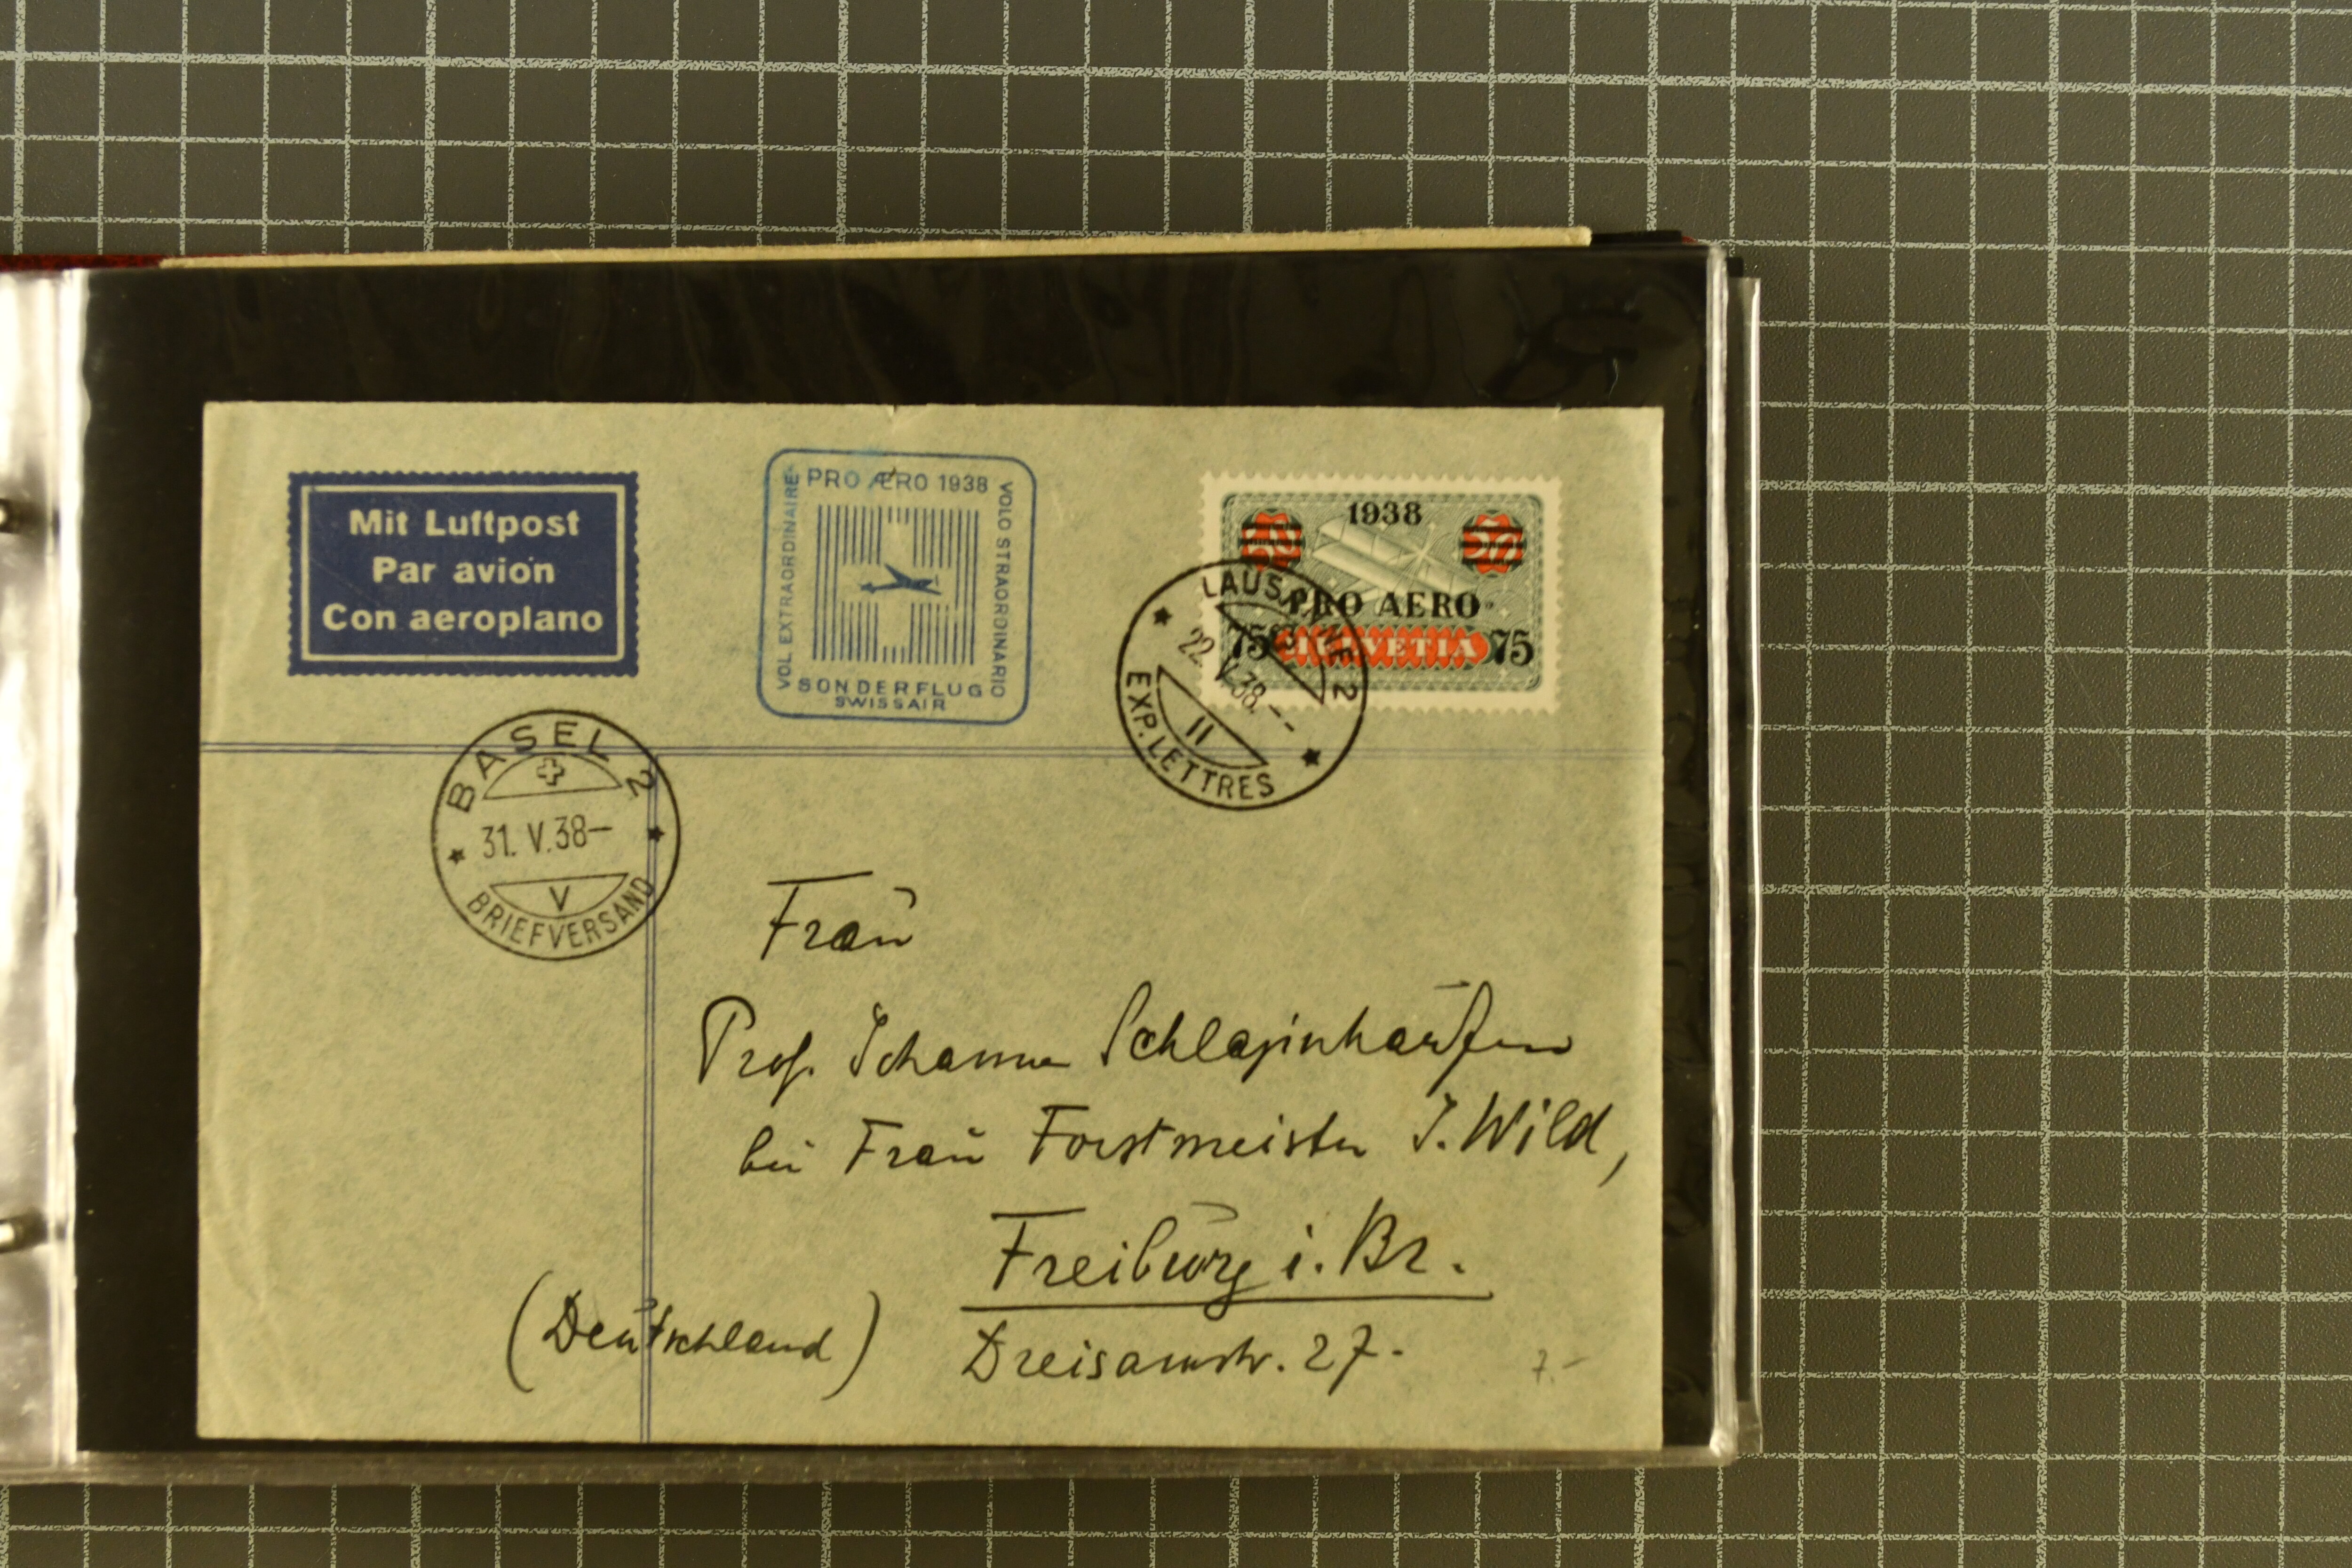 Mit Luftpost
Par avion
Con aeroplano
PRO ÆRO 1938
VOL EXTRAORDINAIRE
VOLO STRAORDINARIO
SONDERFLUG
SWISSAIR
1938
PRO AERO
75 HELVETIA 75
LAUSANNE 2
22.V.38.--
II
EXP. LETTRES
BASEL 2
31. V.38—
V
BRIEFVERSAND
Frau
Prof. Johanna Schlaginhaufen
bei Frau Forstmeister J. Wild,
Freiburg i. Br.
(Deutschland) Dreisamstr. 27.
7.-